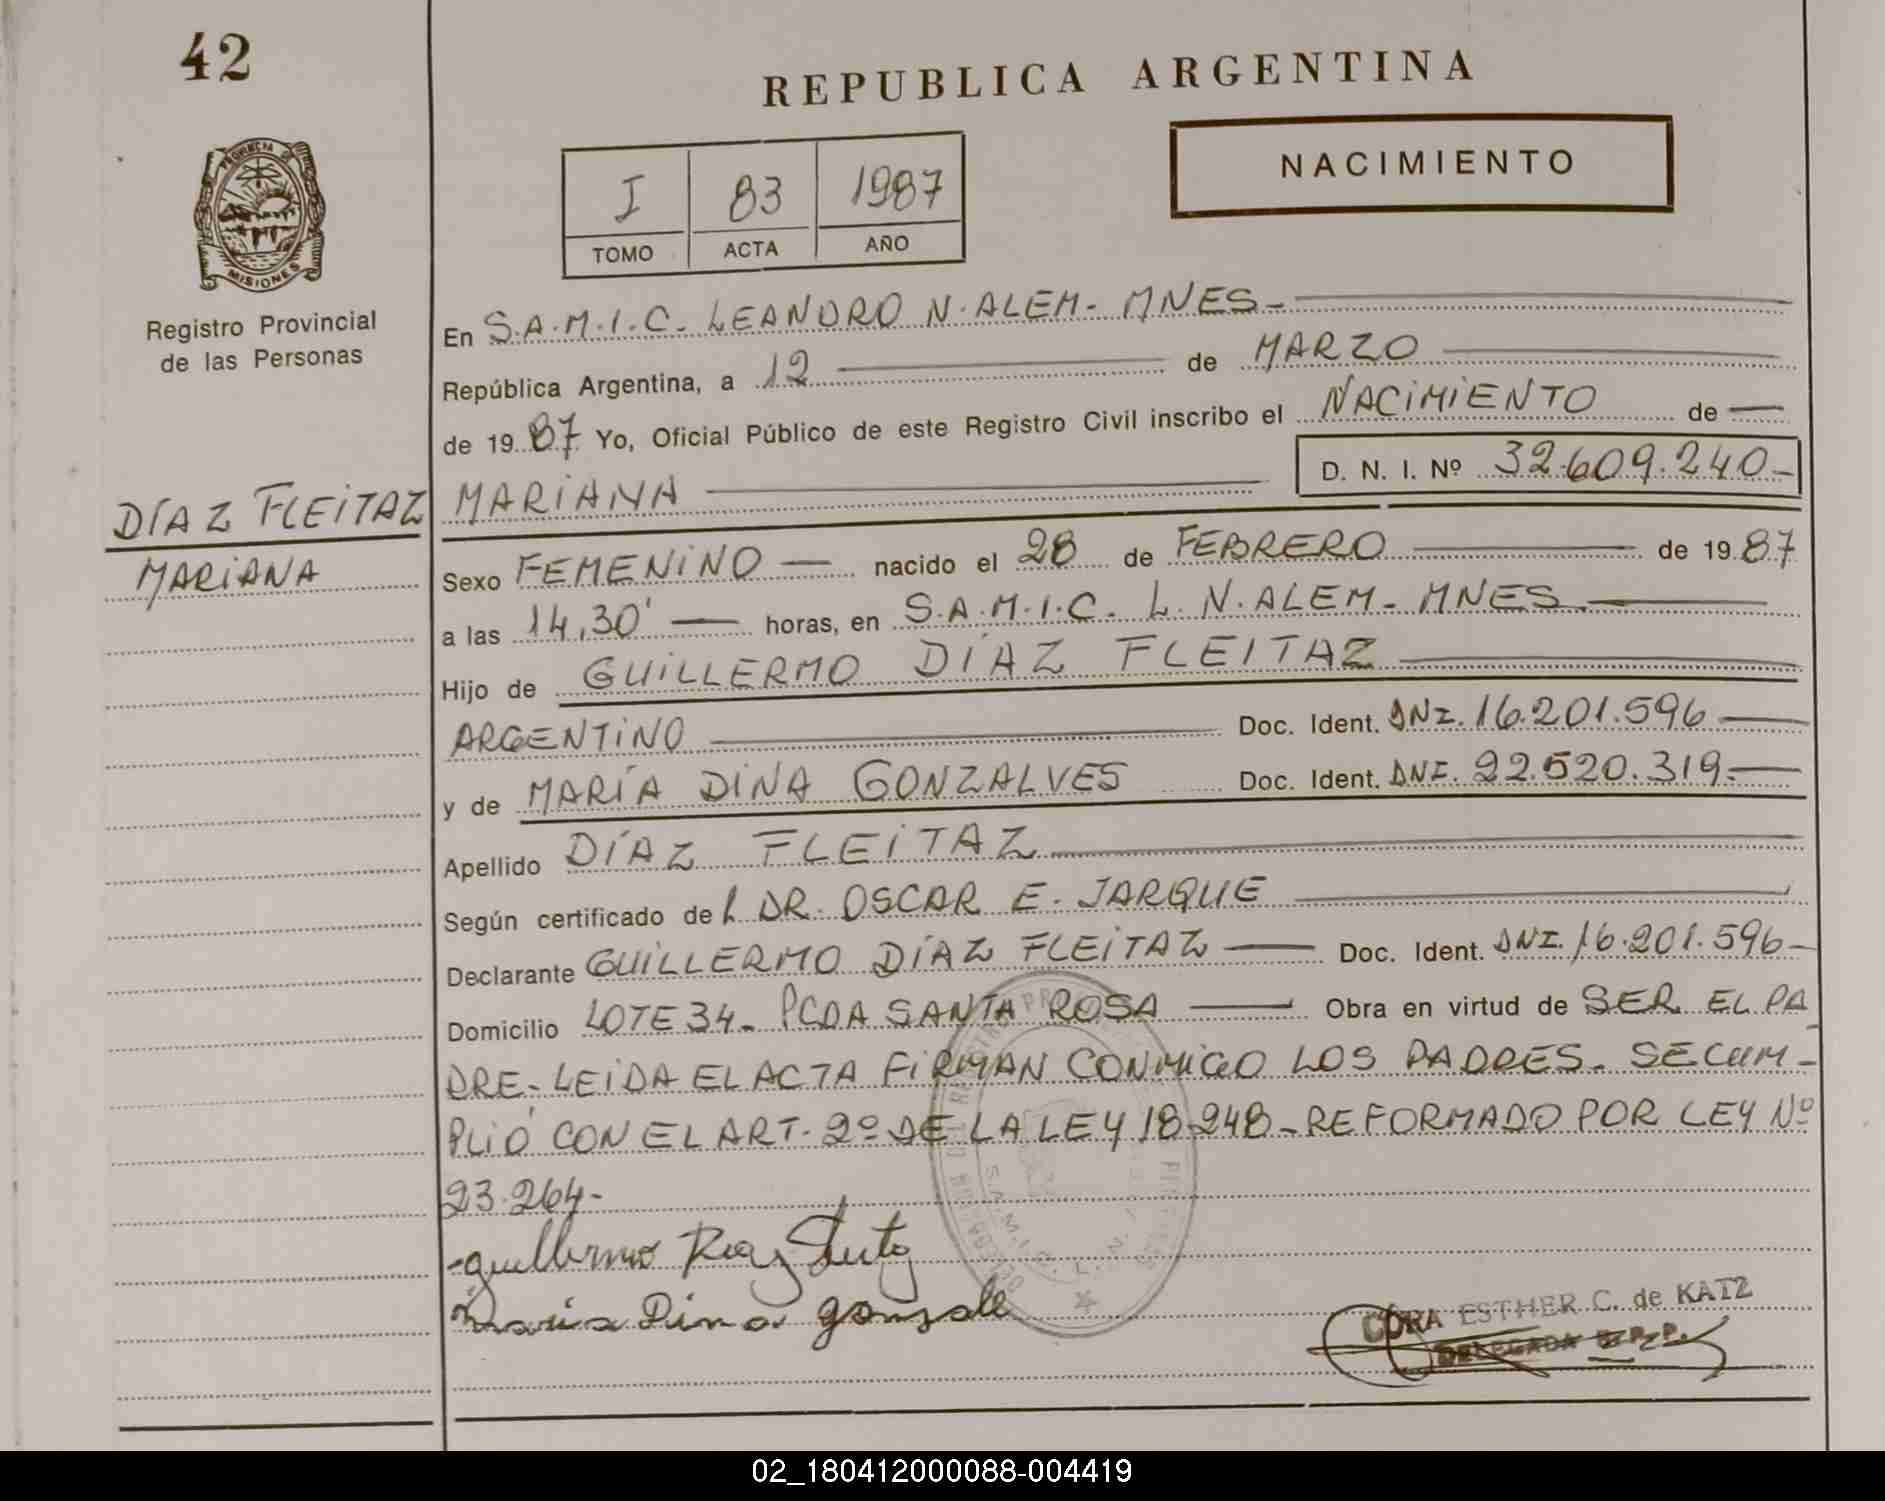 42
REPUBLICA ARGENTINA
PROVINCIA DE
MISIONES
Registro Provincial
de las Personas
I 83 1987
TOMO ACTA AÑO
NACIMIENTO
En S.A.M.I.C. LEANDRO N. ALEM - MNES -
República Argentina, a 12 de MARZO
de 1987 Yo, Oficial Público de este Registro Civil inscribo el NACIMIENTO de
D. N. I. Nº 32.609.240-
DÍAZ FLEITAZ
MARIANA
MARIANA
Sexo FEMENINO nacido el 28 de FEBRERO de 1987
a las 14,30' horas, en S.A.M.I.C. L. N. ALEM - MNES.
Hijo de GUILLERMO DÍAZ FLEITAZ
ARGENTINO Doc. Ident. DNI. 16.201.596
y de MARÍA DINA GONZALVES Doc. Ident. DNI. 22.520.319.
Apellido DÍAZ FLEITAZ
Según certificado del DR. OSCAR E. JARQUE
Declarante GUILLERMO DÍAZ FLEITAZ Doc. Ident. DNI. 16.201.596
Domicilio LOTE 34 - PCDA SANTA ROSA Obra en virtud de SER EL PA
DRE - LEIDA EL ACTA FIRMAN CONMIGO LOS PADRES. SE CUM-
PLIÓ CON EL ART. 2º DE LA LEY 18.248 - REFORMADO POR LEY Nº
23.264-
Guillermo Diaz
Maria Dina Gonzale
CORA ESTHER C. de KATZ
DELEGADA R. P. P.
02_180412000088-004419